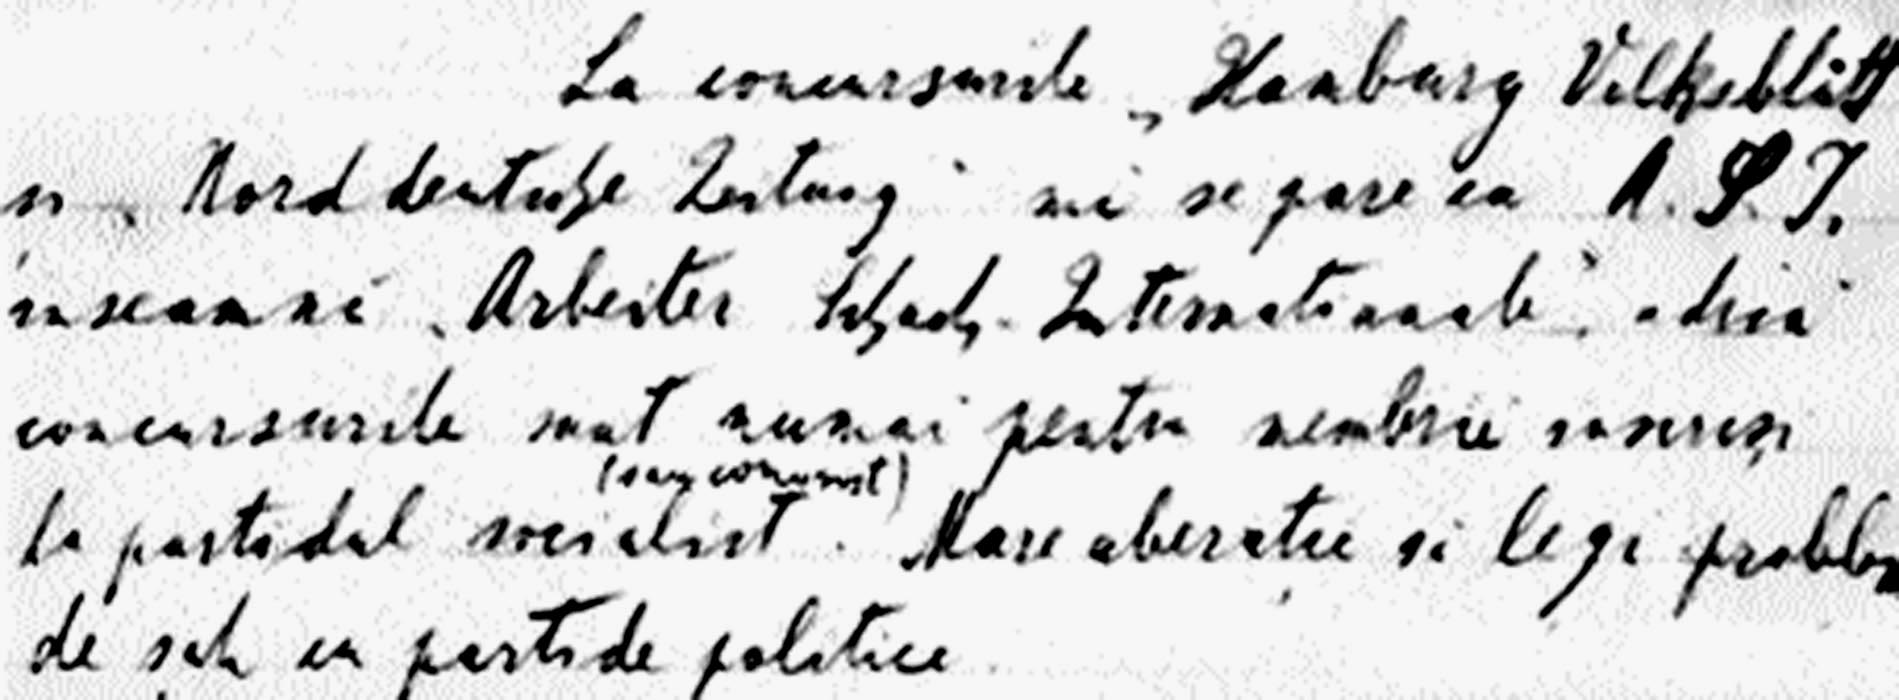 La concursurile „Hamburg Volksblatt
și „Norddeutsche Zeitung" mi se pare ca A. S. I.
inseamnă „Arbeiter Schach-Internationale", adică
concursurile sunt numai pentru membrii inscriși
la partidul socialist (sau comunist). Mare aberație să legi problem
de șah cu partide politice